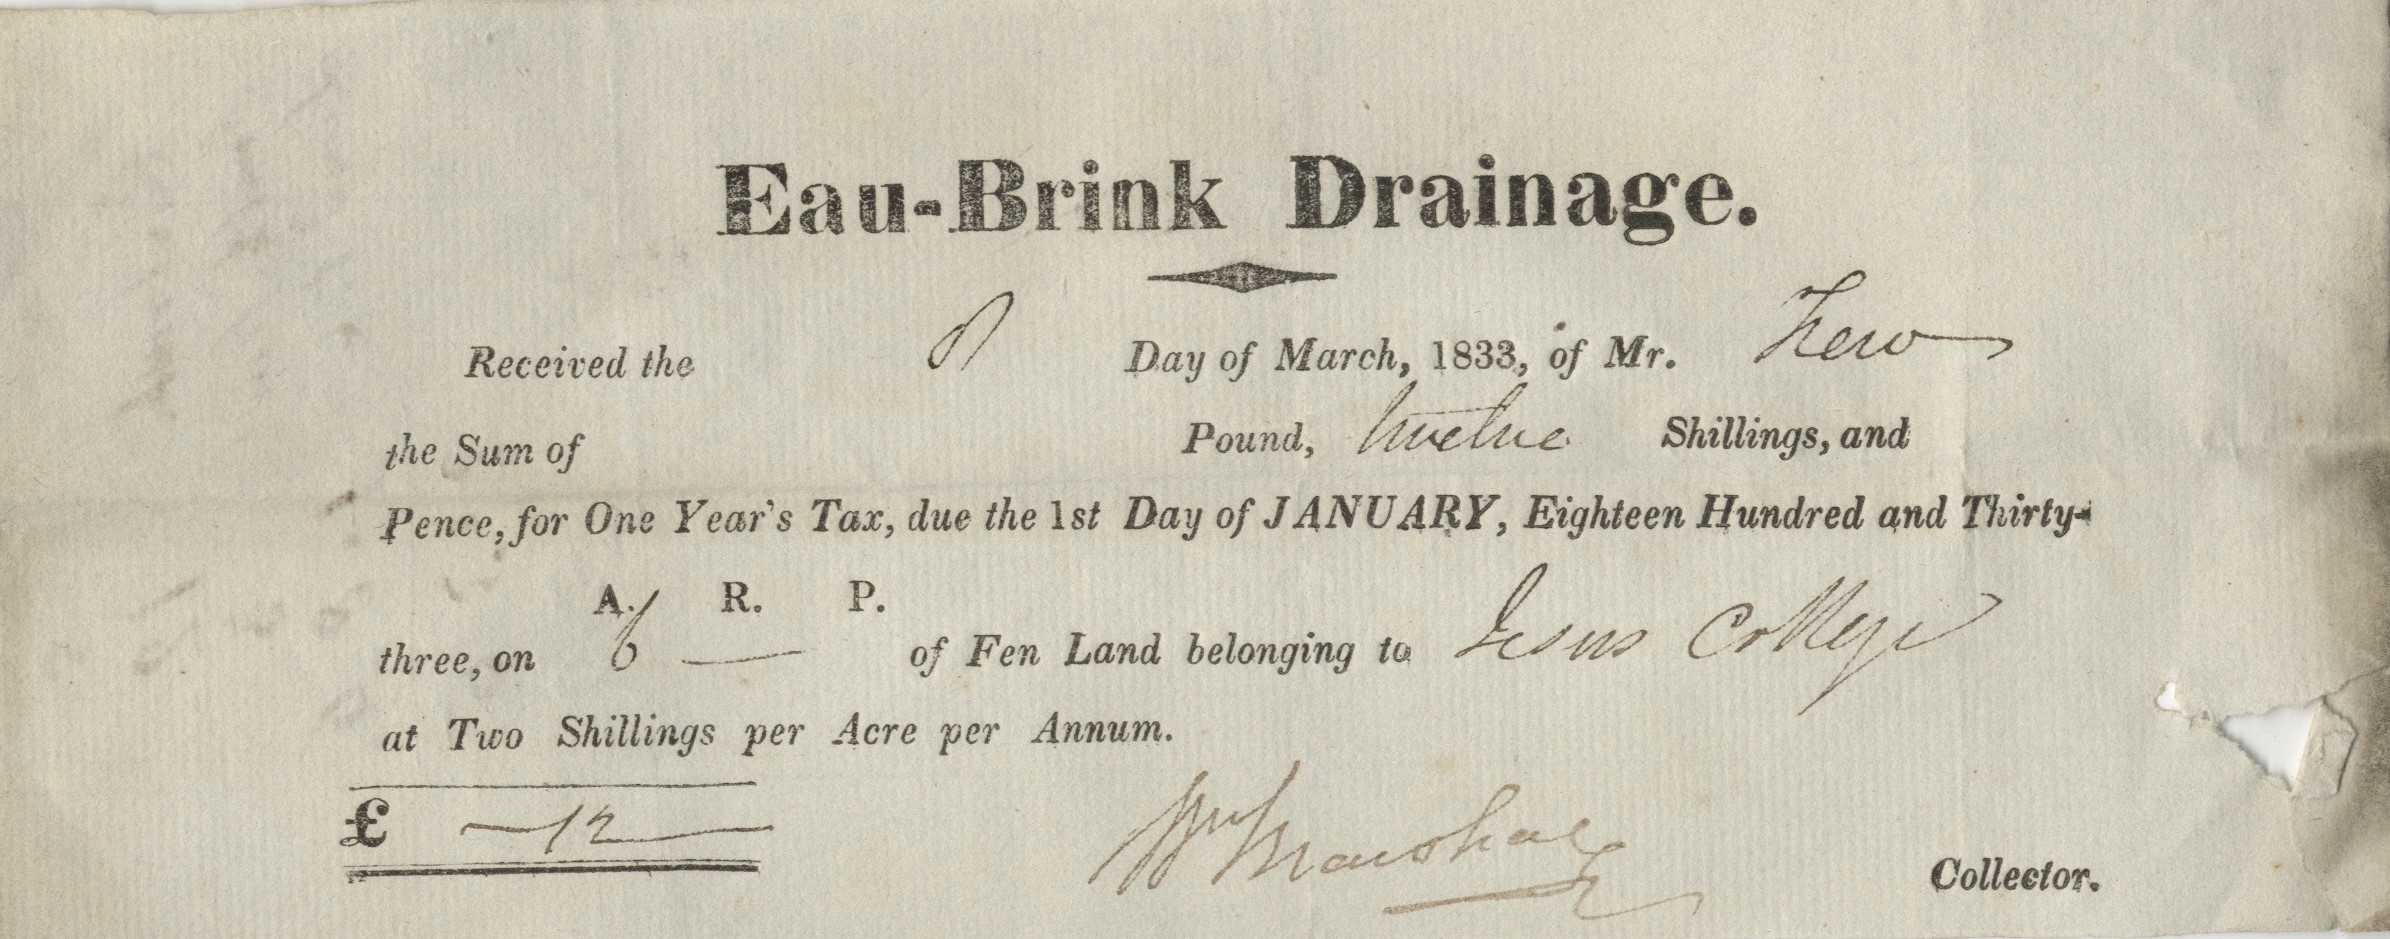 Eau-Brink Drainage.
Received the Day of March, 1833, of Mr.
the Sum of Pound, twelve Shillings, and
Pence, for One Year's Tax, due the 1st Day of JANUARY, Eighteen Hundred and Thirty-
A. R. P.
three, on 6 — of Fen Land belonging to Jesus College
at Two Shillings per Acre per Annum.
£ —12—
Wm Marshall
Collector.